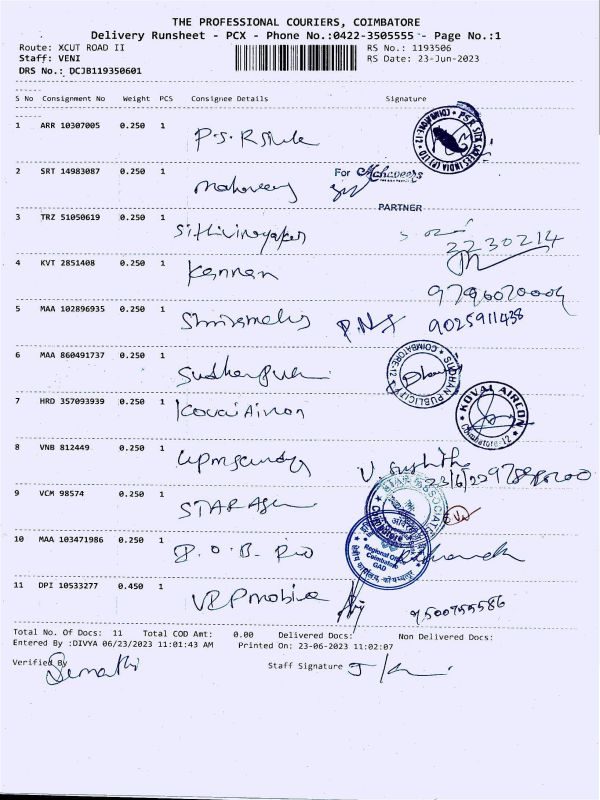 THE PROFESSIONAL COURIERS, COIMBATORE
Delivery Runsheet - PCX - Phone No.:0422-3505555 - Page No.:1
Route: XCUT ROAD II RS No.: 1193506
Staff: VENI RS Date: 23-Jun-2023
DRS No.: DCJB119350601
S No Consignment No Weight PCS Consignee Details Signature
1 ARR 10307005 0.250 1 P.S.R
COIMBATORE-12 P.S.R. SILK SAREES INDIA (P) LTD
2 SRT 14983087 0.250 1 Mahaveers For Mahaveers
PARTNER
3 TRZ 51050619 0.250 1 Sithivinayaker
2230214
4 KVT 2851408 0.250 1 Kannan
5 MAA 102896935 0.250 1 9025911438
6 MAA 860491737 0.250 1
COIMBATORE-12 SUDHAN PUBLICITY
7 HRD 357093939 0.250 1 Kovai Aircon
KOVAI AIRCON Coimbatore-12
8 VNB 812449 0.250 1
9 VCM 98574 0.250 1 STAR
STAR ASSOCIATE
10 MAA 103471986 0.250 1
Regional Office
Coimbatore
11 DPI 10533277 0.450 1 VRP mobile 9500755586
Total No. Of Docs: 11 Total COD Amt: 0.00 Delivered Docs: Non Delivered Docs:
Entered By :DIVYA 06/23/2023 11:01:43 AM Printed On: 23-06-2023 11:02:07
Verified By Staff Signature